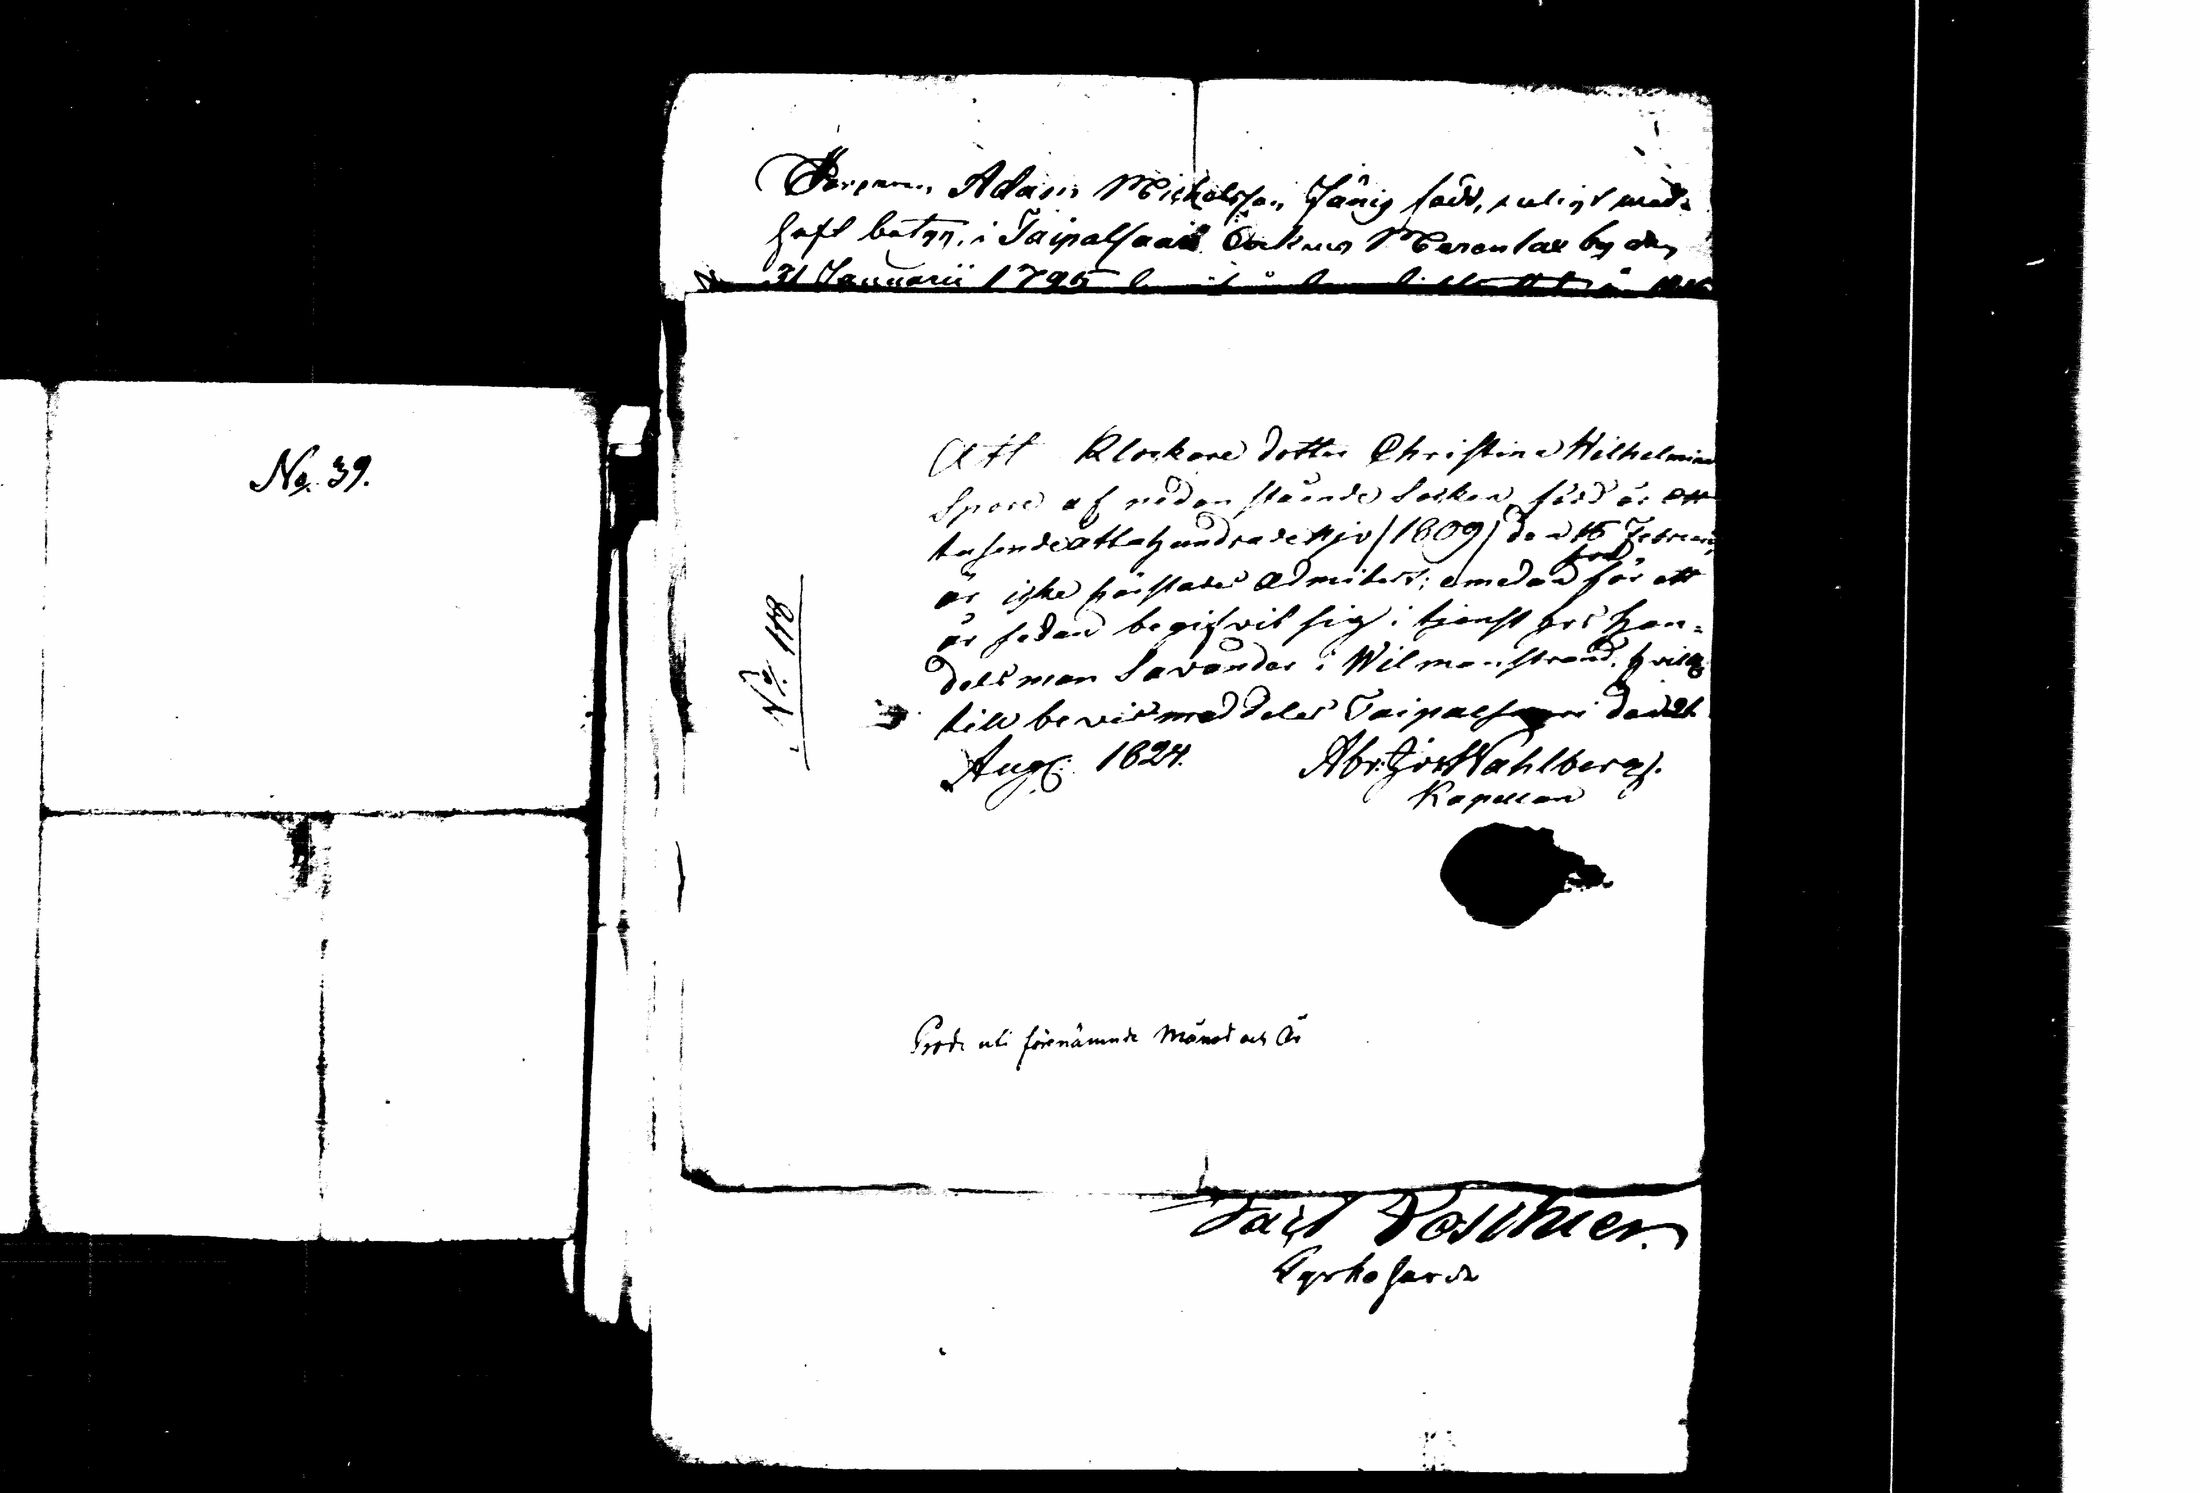 No. 39.
Adam Michelsson Jänig född, enligt med=
haft betyg, i Taipalsaari Socken Merenlax by den
31 Januarii 1795
No. 118
Att Klockare dotter Christina Wilhelmina
Spore af nedan stående Socken, född år ett
tusende åttahundrade njo /1809/ den 16 Februarii
är icke härstädes admitterd; emedan hon för ett
år sedan begifvit sig i tjenst hos Han=
delsman Savander i Wilmanstrand, hvilket
till bevis meddeles Taipalsaari den 21
Aug: 1824. Abr. Joh. Wahlberg.
Kapellan
Prod. uti förenämnde Månad och År
Carl Poschier.
Kyrkoherde